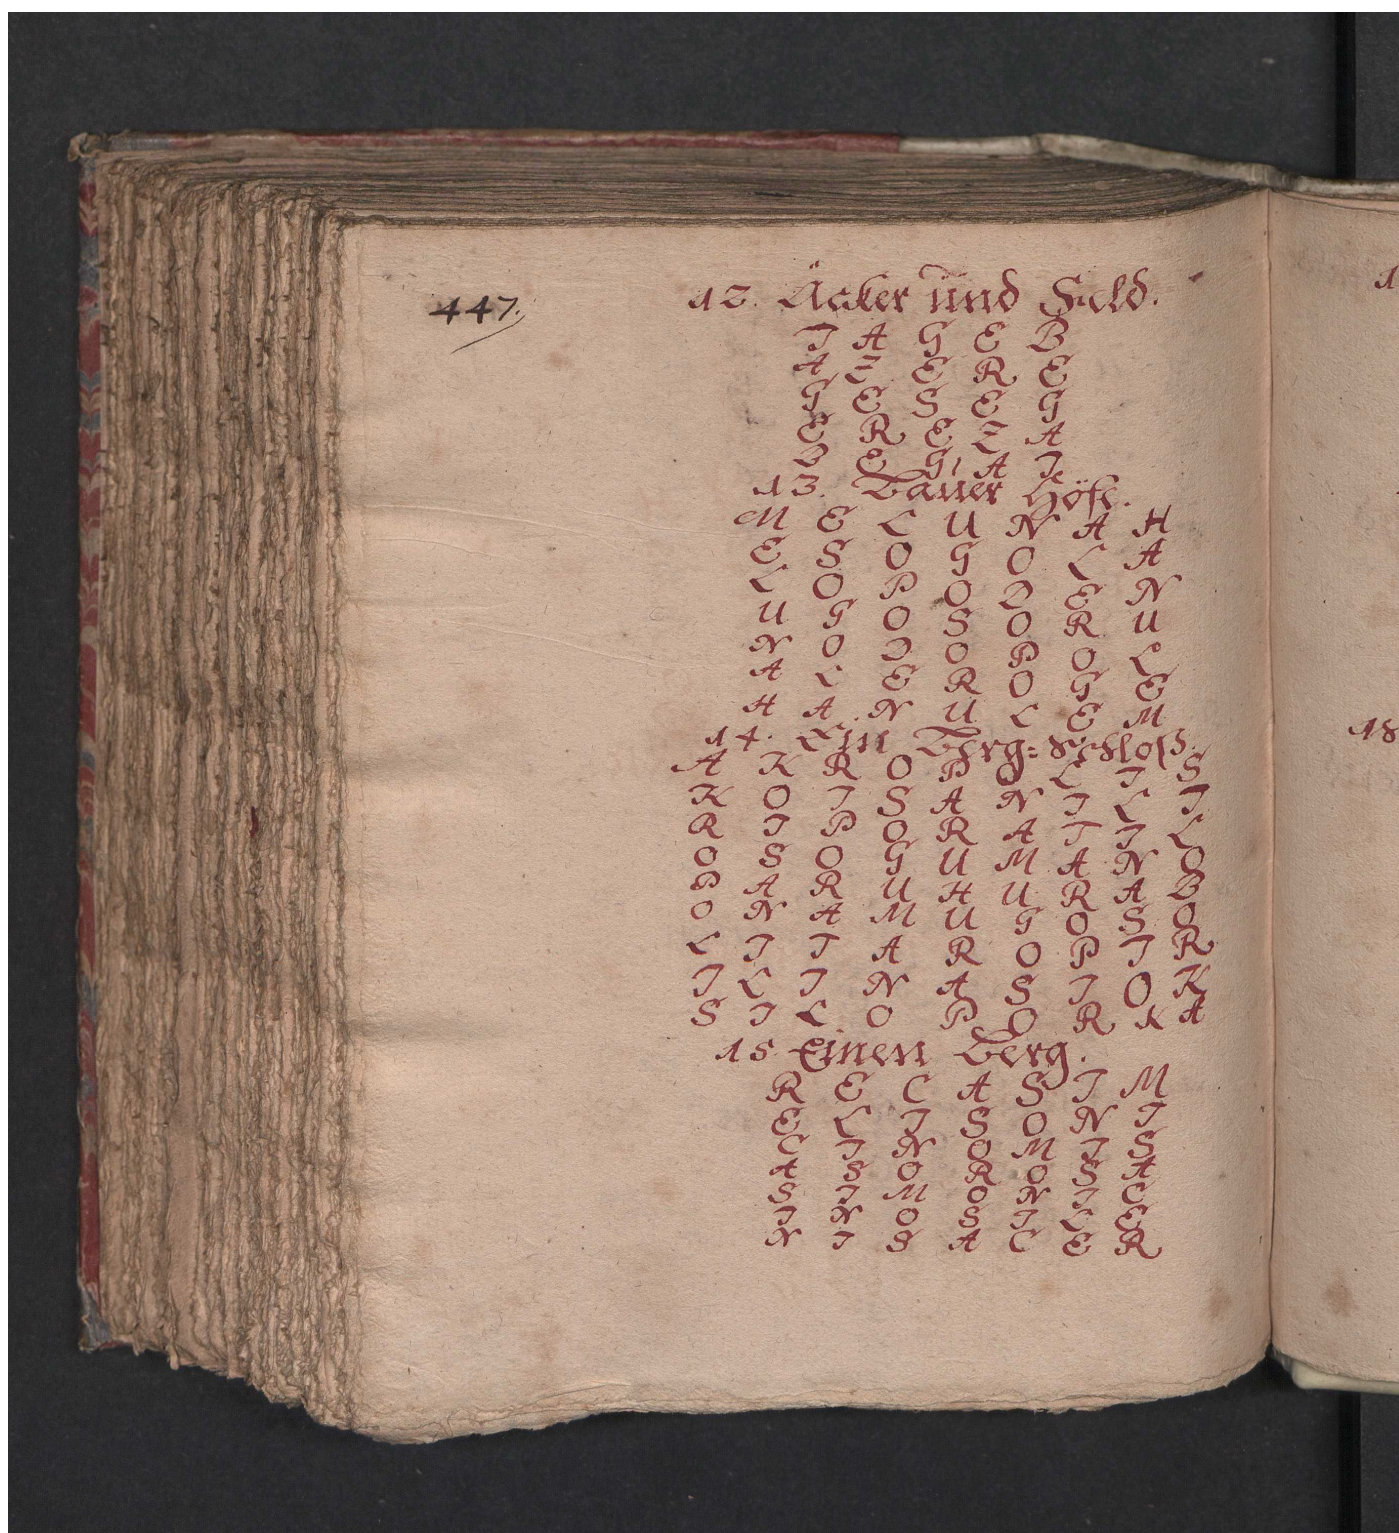 447.
12. Äcker und Feld.
J A G E B
A Z E R E
G E S E G
E R E Z A
B E G A J
13. Bauer Höfe.
M E L U N A H
E S O G O L A
L O P O J E N
U G O S O R U
N O J O P O L
A L E R O G E
H A N U L E M
14. Ein Berg=Schloß.
A K R O P O L J S
K O J S A N J L J
R J P O R A T J L
O S O G U M A N O
P A R U H U R A B
O N A M U G O S O
L J T A R O P J R
J L J N A S J O K
S J L O P O R K A
15 Einen Berg.
R E C A S J M
E L J S O N J
C J N O M J S
A S O R O S A
S J M O N J C
J N O S J L E
N J S A C E R
1
18